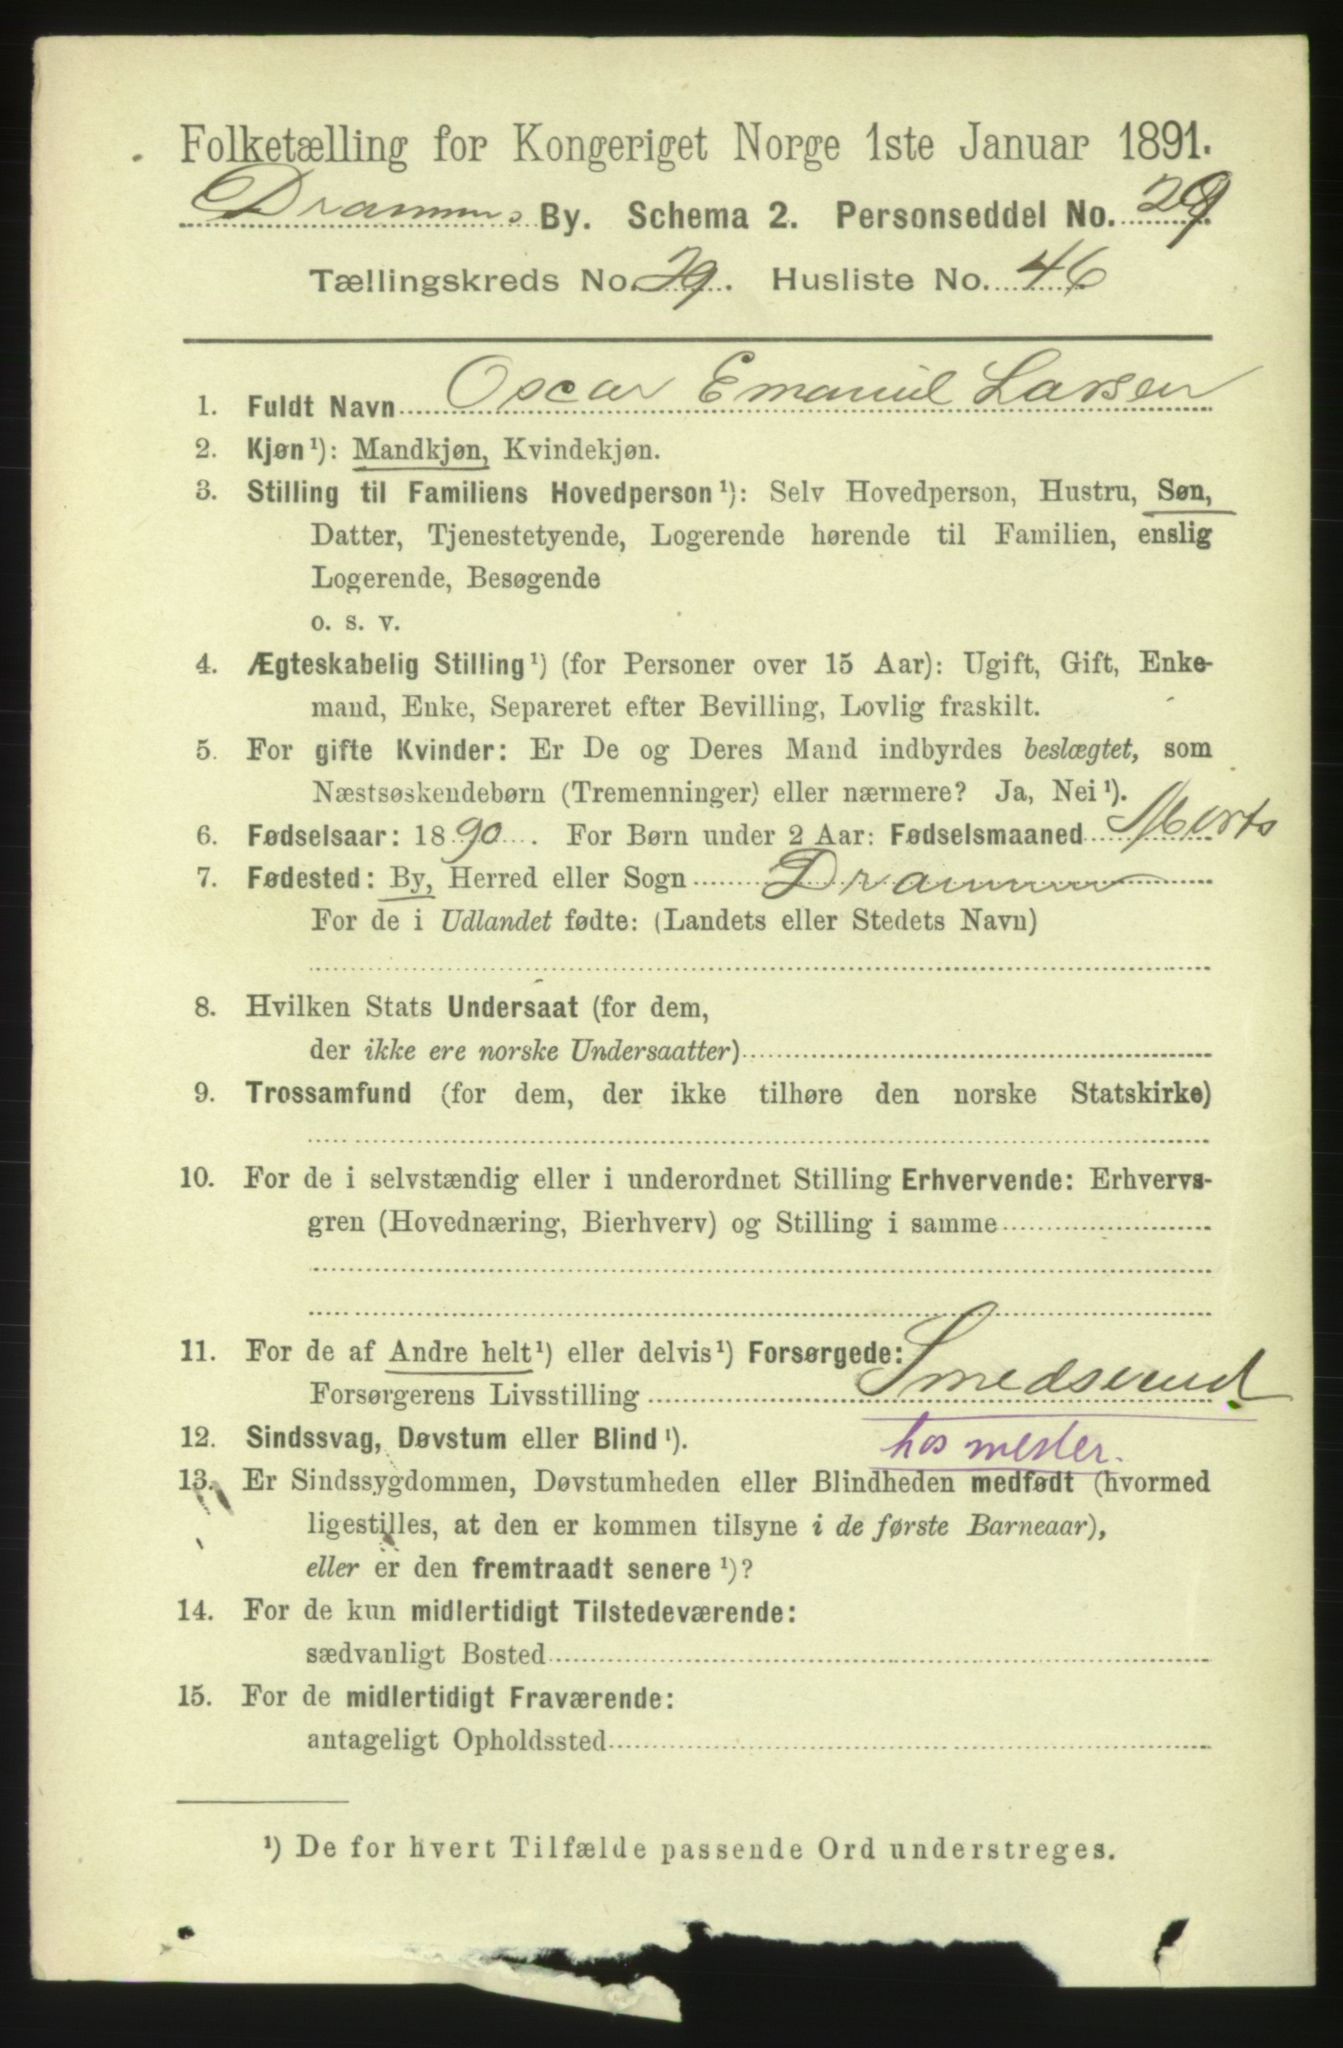 Folketælling for Kongeriget Norge 1ste Januar 1891.
Drammens By. Schema 2. Personseddel No. 29
Tællingskreds No. 29. Husliste No. 46
1. Fuldt Navn Oscar Emanuel Larsen
2. Kjøn¹): Mandkjøn, Kvindekjøn.
3. Stilling til Familiens Hovedperson¹): Selv Hovedperson, Hustru, Søn,
Datter, Tjenestetyende, Logerende hørende til Familien, enslig
Logerende, Besøgende
o. s. v.
4. Ægteskabelig Stilling¹) (for Personer over 15 Aar): Ugift, Gift, Enke-
mand, Enke, Separeret efter Bevilling, Lovlig fraskilt.
5. For gifte Kvinder: Er De og Deres Mand indbyrdes beslægtet, som
Næstsøskendebørn (Tremenninger) eller nærmere? Ja, Nei¹).
6. Fødselsaar: 1890. For Børn under 2 Aar: Fødselsmaaned Marts
7. Fødested: By, Herred eller Sogn Drammen
For de i Udlandet fødte: (Landets eller Stedets Navn)
8. Hvilken Stats Undersaat (for dem,
der ikke ere norske Undersaatter)
9. Trossamfund (for dem, der ikke tilhøre den norske Statskirke)
10. For de i selvstændig eller i underordnet Stilling Erhvervende: Erhvervs-
gren (Hovednæring, Bierhverv) og Stilling i samme
11. For de af Andre helt¹) eller delvis¹) Forsørgede:
Forsørgerens Livsstilling Smedsvend
12. Sindssvag, Døvstum eller Blind¹). hos mester.
13. Er Sindssygdommen, Døvstumheden eller Blindheden medfødt (hvormed
ligestilles, at den er kommen tilsyne i de første Barneaar),
eller er den fremtraadt senere¹)?
14. For de kun midlertidigt Tilstedeværende:
sædvanligt Bosted
15. For de midlertidigt Fraværende:
antageligt Opholdssted
¹) De for hvert Tilfælde passende Ord understreges.